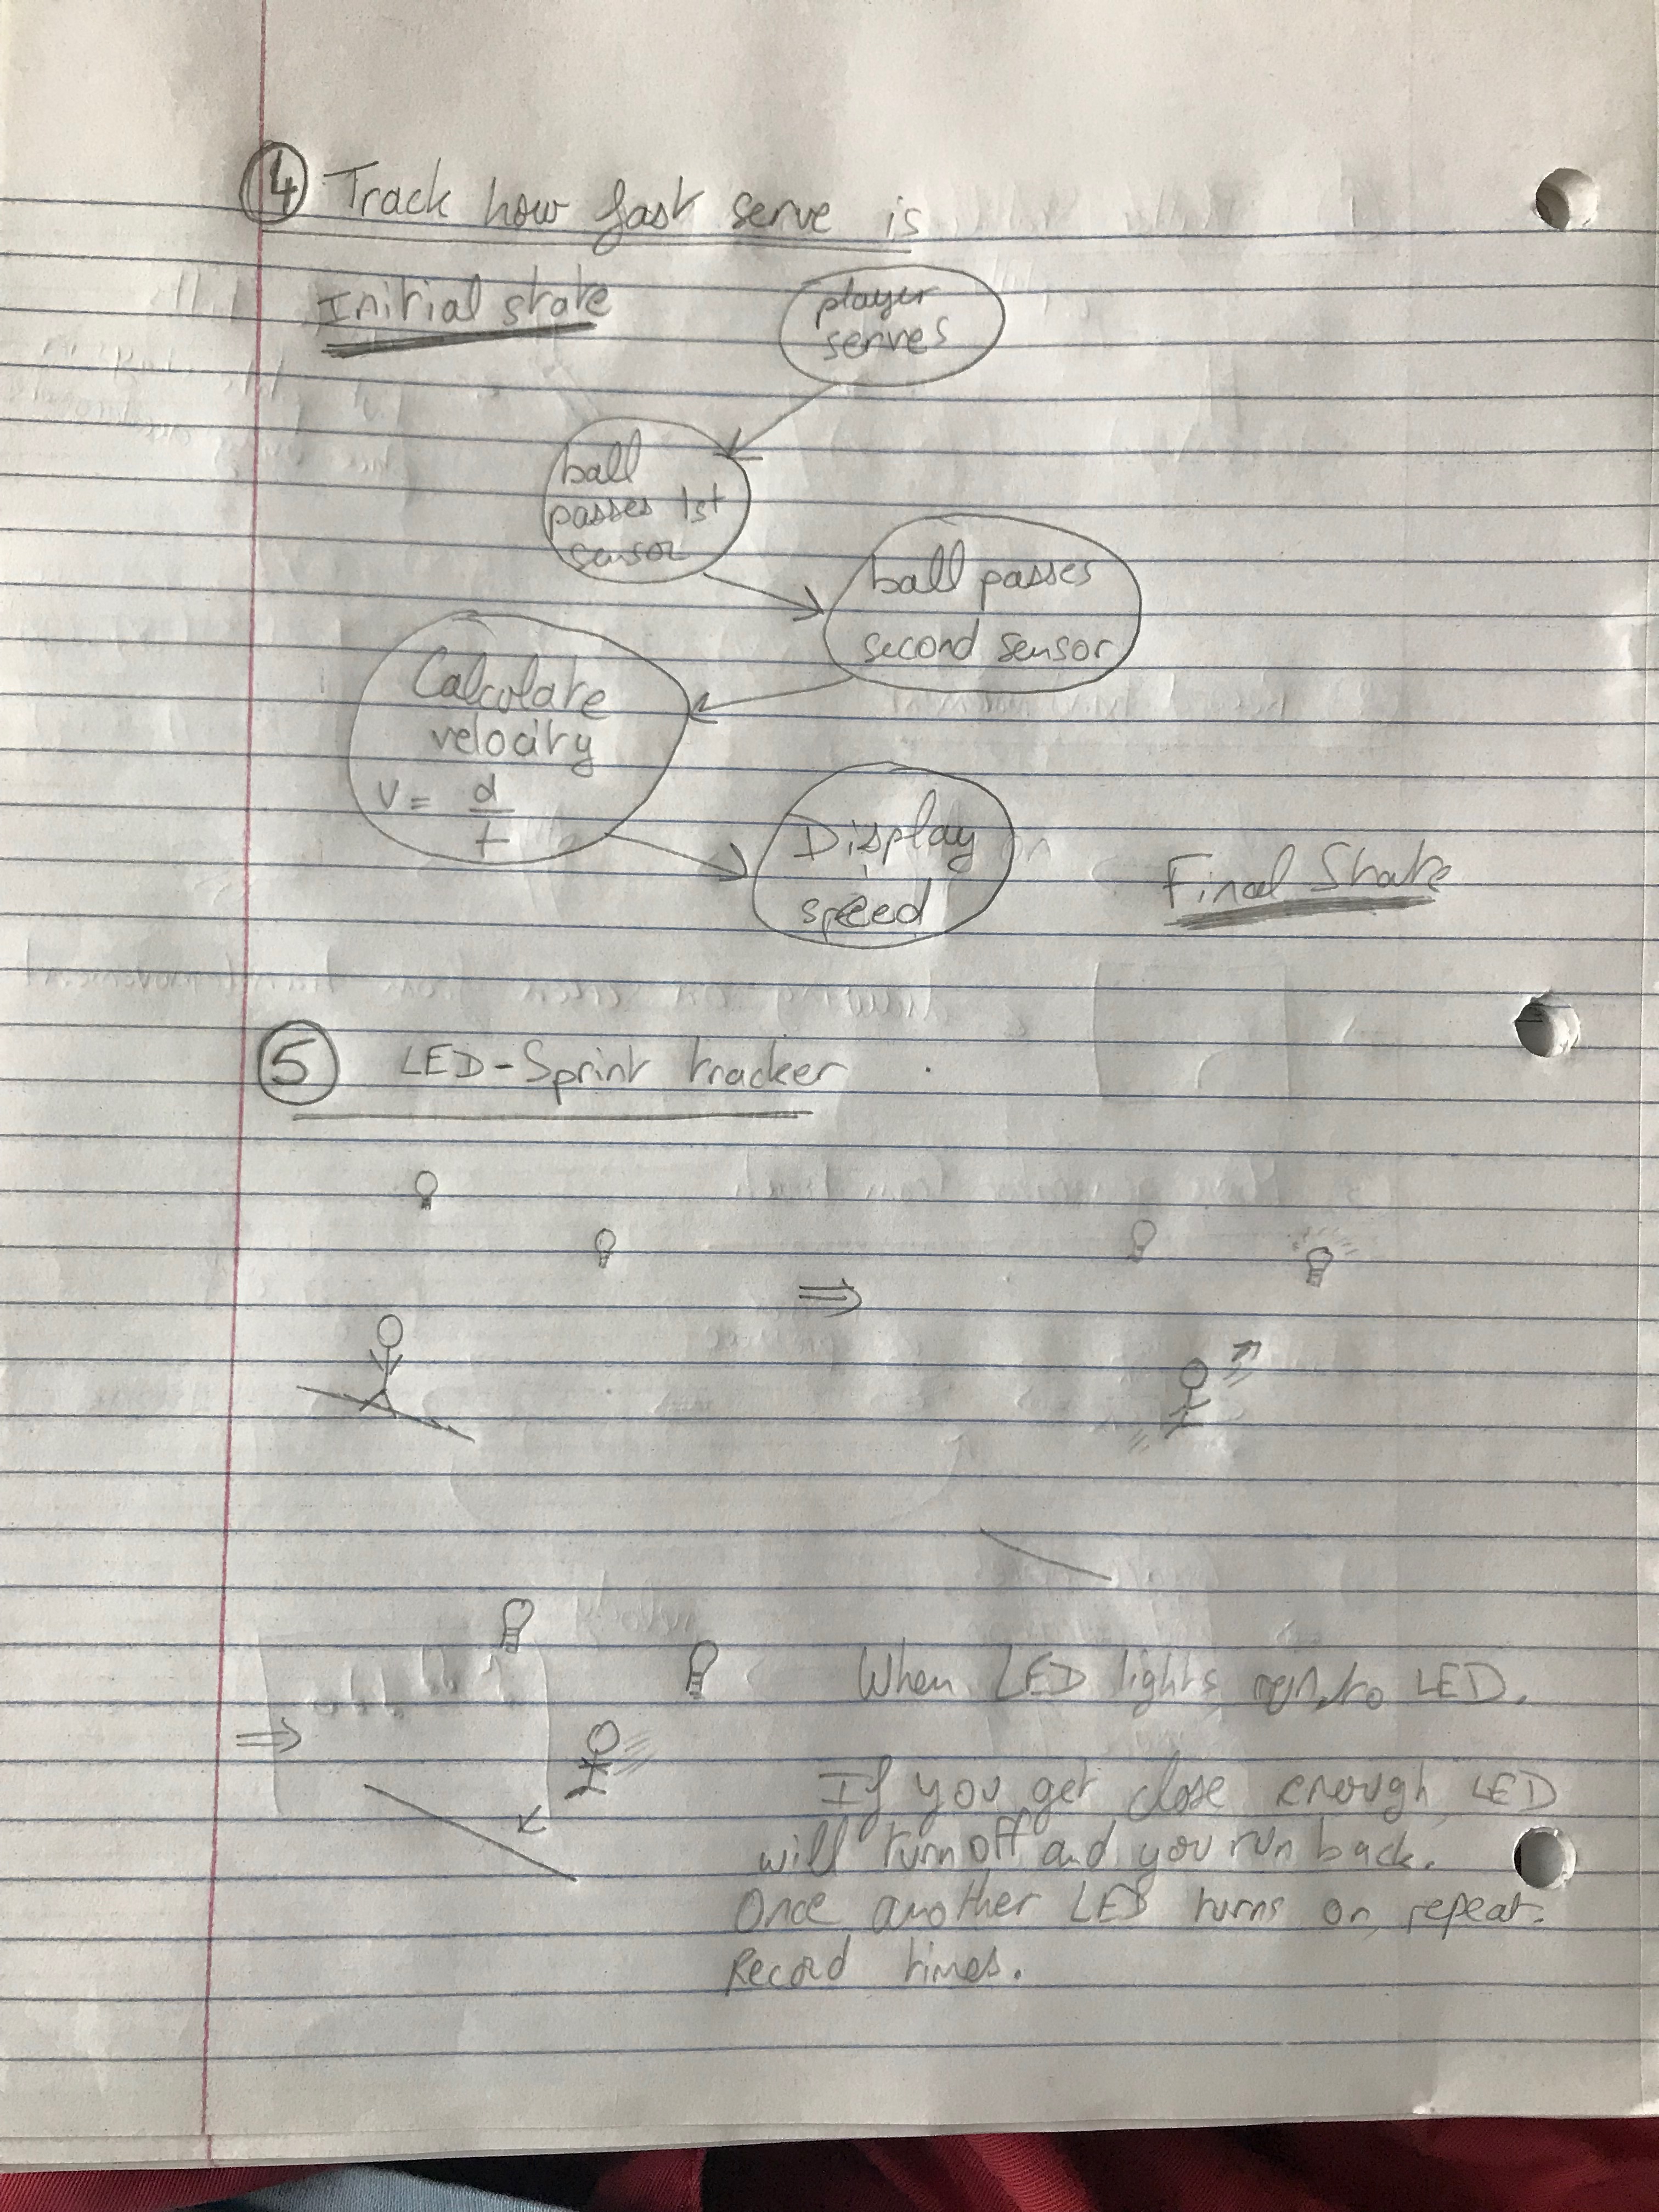 4 Track how fast serve is
Initial state
player
serves
ball
passes 1st
sensor
ball passes
second sensor
Calculate
velocity
V = d/t
Display
speed
Final State
5 LED-Sprint tracker
When LED lights, run to LED.
If you get close enough, LED
will turn off and you run back.
Once another LED turns on, repeat.
Record times.